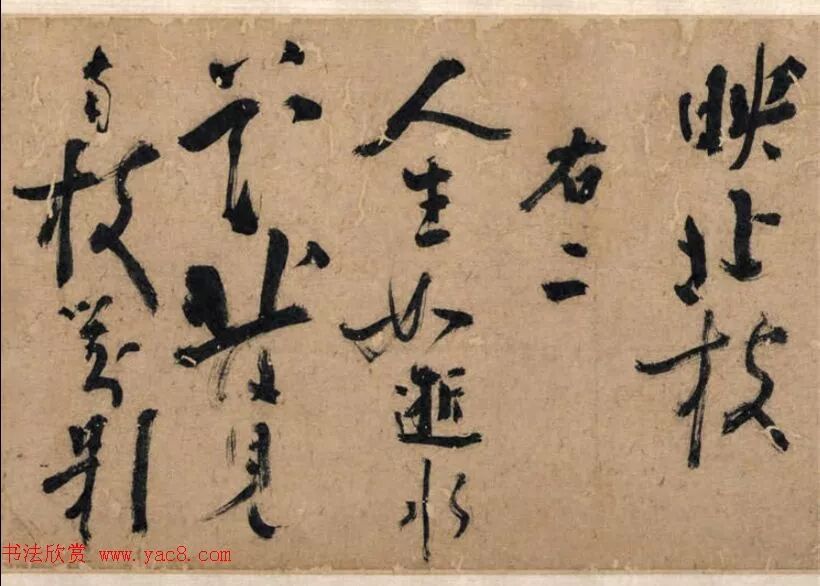 映北枝
右二
人生如逝水
背見
南枝影
书法欣赏 www.yac8.com